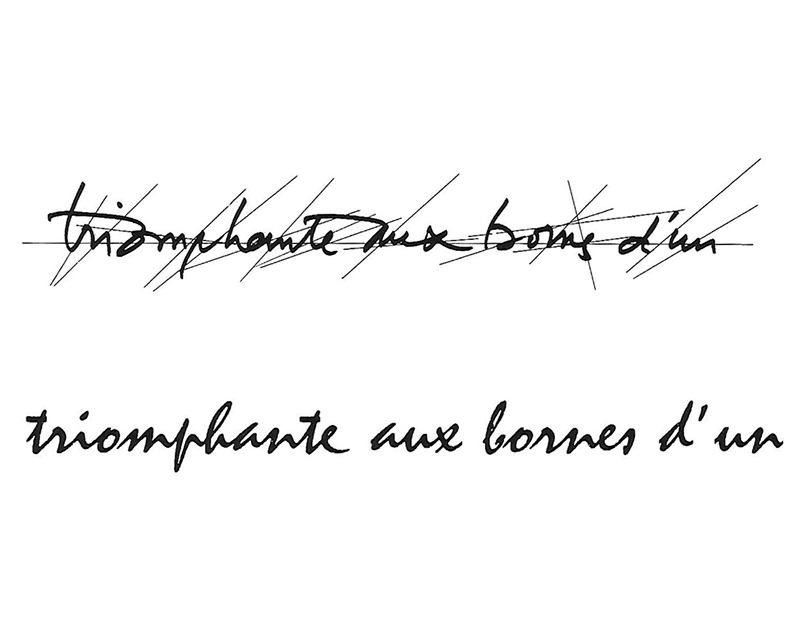 triomphante aux bornes d'un
triomphante aux bornes d'un